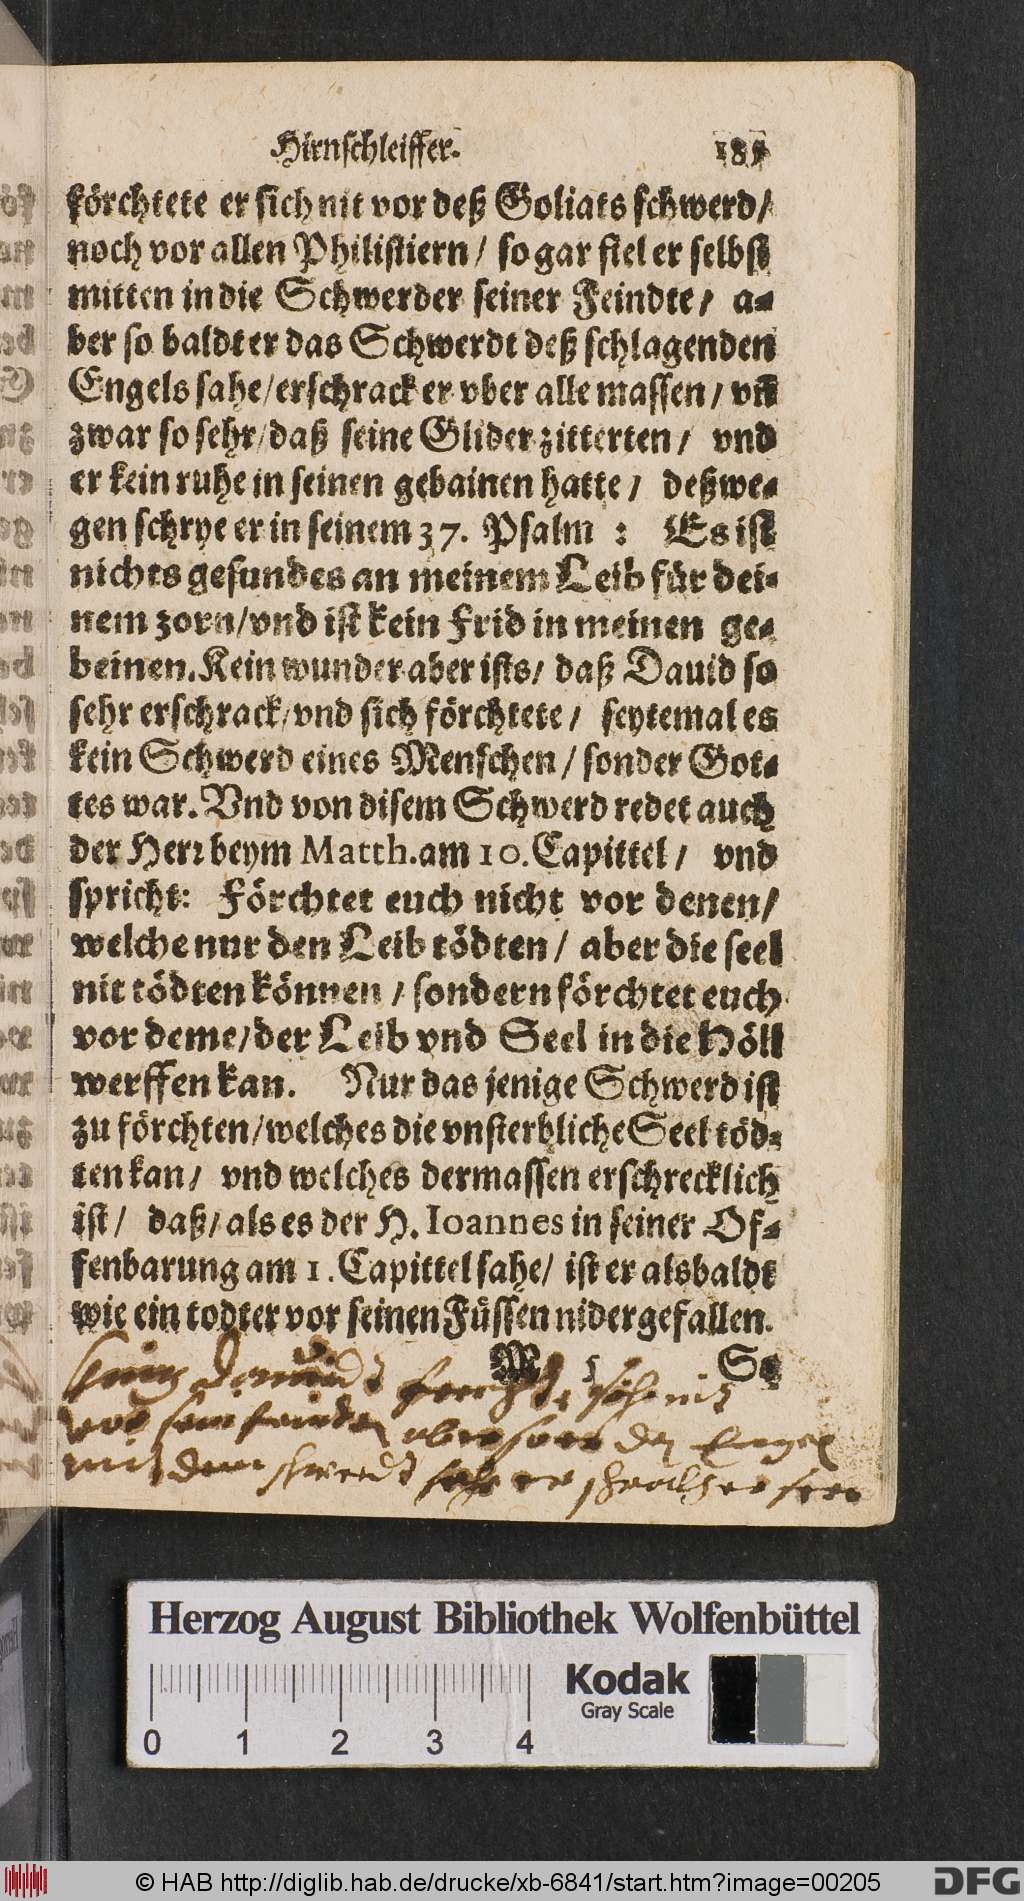 Hirnschleiffer. 185
förchtete er sich nit vor deß Goliats schwerd/
noch vor allen Philistiern/ so gar fiel er selbst
mitten in die Schwerder seiner Feindte/ a-
ber so baldt er das Schwerdt deß schlagenden
Engels sahe/ erschrack er vber alle massen/ vñ
zwar so sehr/ daß seine Glider zitterten/ vnd
er kein ruhe in seinen gebainen hatte/ deßwe-
gen schrye er in seinem 37. Psalm : Es ist
nichts gesundes an meinem Leib für dei-
nem zorn/ vnd ist kein frid in meinen ge-
beinen. Kein wunder aber ists/ daß Dauid so
sehr erschrack/ vnd sich förchtete/ seytemal es
kein Schwerd eines Menschen/ sonder Got-
tes war. Vnd von disem Schwerd redet auch
der Herr beym Matth. am 10. Capittel/ vnd
spricht: Förchtet euch nicht vor denen/
welche nur den Leib tödten/ aber die seel
nit tödten können/ sondern förchtet euch
vor deme/ der Leib vnd Seel in die Höll
werffen kan. Nur das jenige Schwerd ist
zu förchten/ welches die vnsterbliche Seel töd-
ten kan/ vnd welches dermassen erschrecklich
ist/ daß/ als es der H. Ioannes in seiner Of-
fenbarung am 1. Capittel sahe/ ist er alsbaldt
wie ein todter vor seinen Füssen nidergefallen.
M 5 So
König Dauidt feerchte sich nit
vor sein feinden aber so er den Engel
mit dem schwerdt sahe er schrackh er seer
Herzog August Bibliothek Wolfenbüttel
Kodak
Gray Scale
0 1 2 3 4
© HAB http://diglib.hab.de/drucke/xb-6841/start.htm?image=00205
DFG